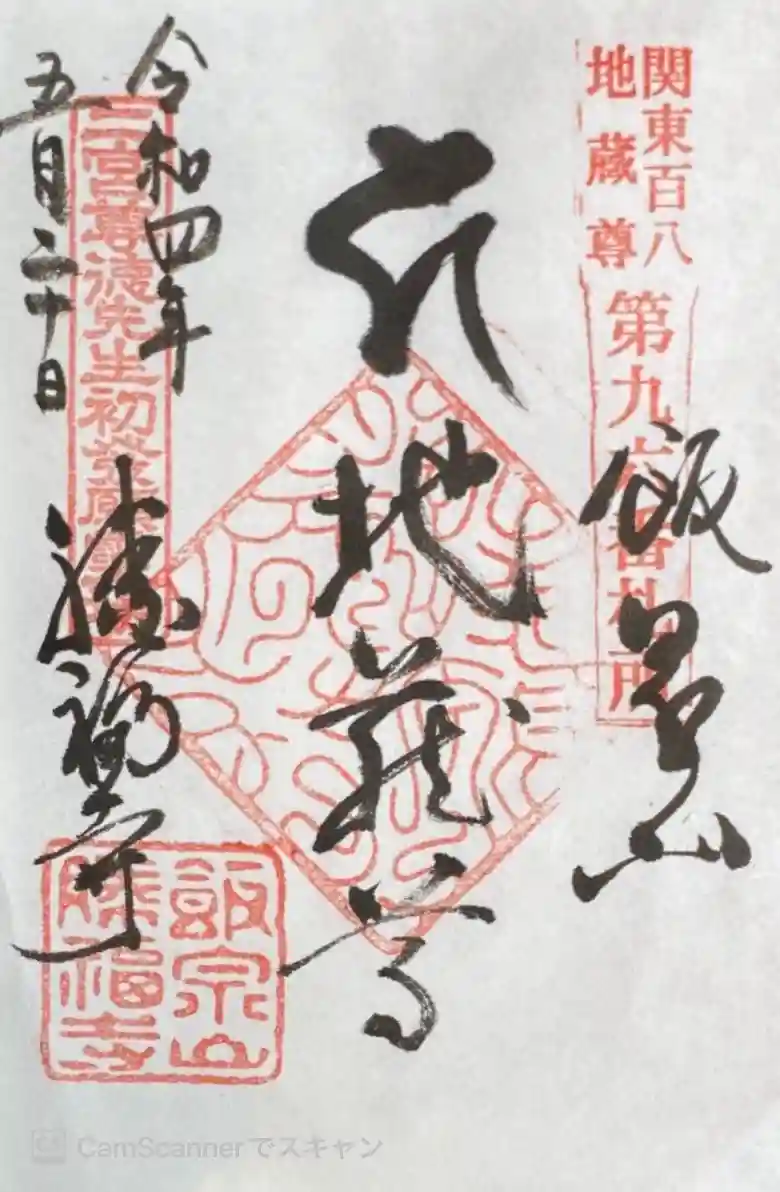 関東百八
地蔵尊
第九六番札所
飯泉山
地蔵尊
令和四年
五月二十日
二宮尊徳先生初発願
勝福寺
飯泉山
勝福寺
CamScannerでスキャン